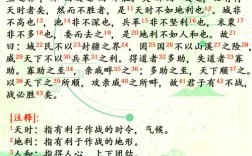 天时者矣，然而不胜者，是天时不如地利也¹²。城非
不高也¹³，池¹⁴非不深也，兵革¹⁵非不坚利¹⁶也，米粟¹⁷
非不多也¹⁸，委而去之¹⁹，是地利不如人和也。故
曰：域²⁰民不以封疆之界²¹，固²²国²³不以山溪²⁴之险²⁵，
威²⁶天下不以兵革之利。得道者²⁸多助，失道者²⁹寡
助。寡助之至³⁰，亲戚畔³¹之；多助之至，天下顺之。
以天下之所顺，攻亲戚之所畔，故君子有不战，
战必胜矣。
[注释]：
¹天时：指有利于作战的时令，气候。
²地利：指有利于作战的地形。
³人和：指得人心，上下团结。